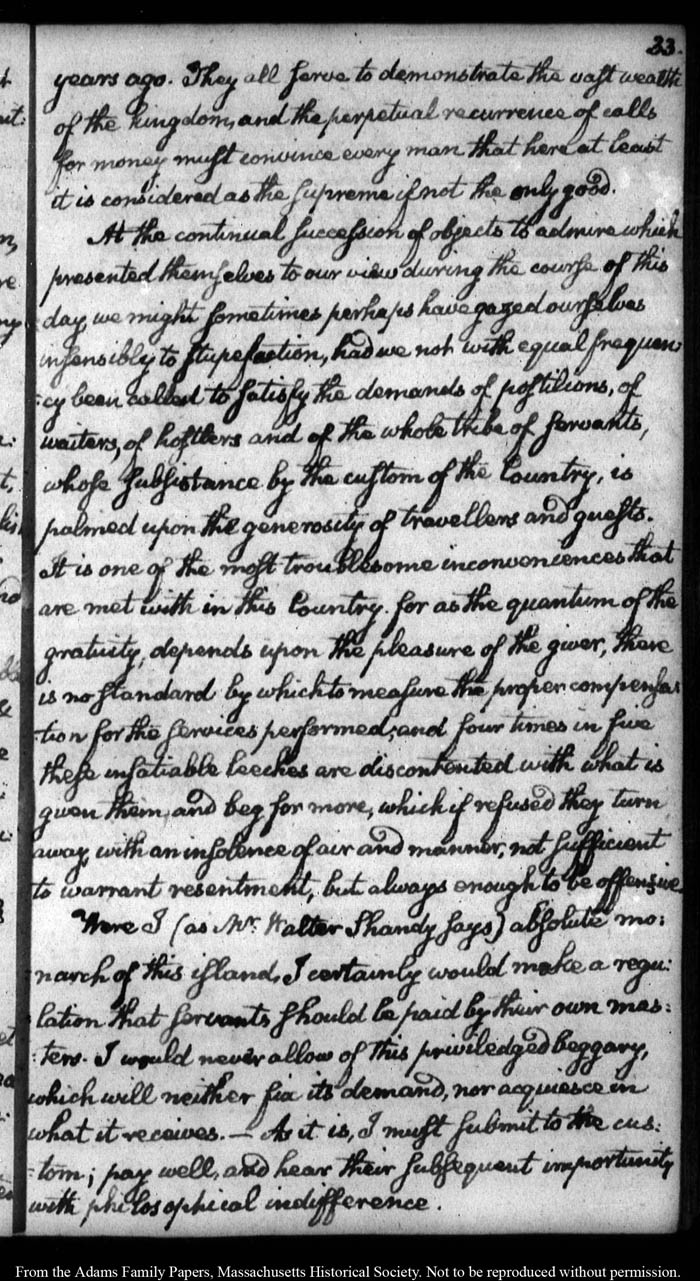 23.
years ago. They all serve to demonstrate the vast wealth
of the kingdom, and the perpetual recurrence of calls
for money must convince every man that here at least
it is considered as the supreme if not the only good.
At the continual succession of objects to admire which
presented themselves to our view during the course of this
day we might sometimes perhaps have gazed ourselves
insensibly to stupefaction, had we not with equal frequen
:cy been called to satisfy the demands of postilions, of
waiters, of hostlers and of the whole tribe of servants,
whose subsistance by the custom of the Country, is
palmed upon the generosity of travellers and guests.
It is one of the most troublesome inconveniences that
are met with in this Country. for as the quantum of the
gratuity, depends upon the pleasure of the giver, there
is no standard by which to measure the proper compensa
:tion for the services performed, and four times in five
these insatiable leeches are discontented with what is
given them, and beg for more, which if refused they turn
away, with an insolence of air and manner, not sufficient
to warrant resentment, but always enough to be offensive.
Were I (as Mr. Walter Shandy says) absolute mo:
narch of this island, I certainly would make a regu:
lation that servants should be paid by their own mas:
:ters. I would never allow of this priviledged beggary,
which will neither fix its demand, nor acquiesce in
what it receives. — As it is, I must submit to the cus:
:tom; pay well, and hear their subsequent importunity
with philosophical indifference.
From the Adams Family Papers, Massachusetts Historical Society. Not to be reproduced without permission.